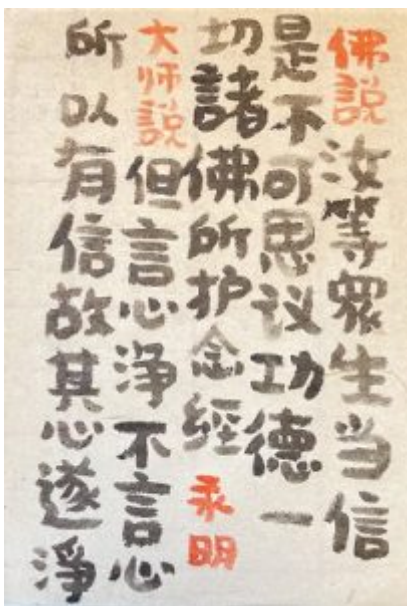 佛説汝等眾生当信
是不可思议功德一
切諸佛所护念經 永明
大师説但言心淨不言心
所以有信故其心遂淨